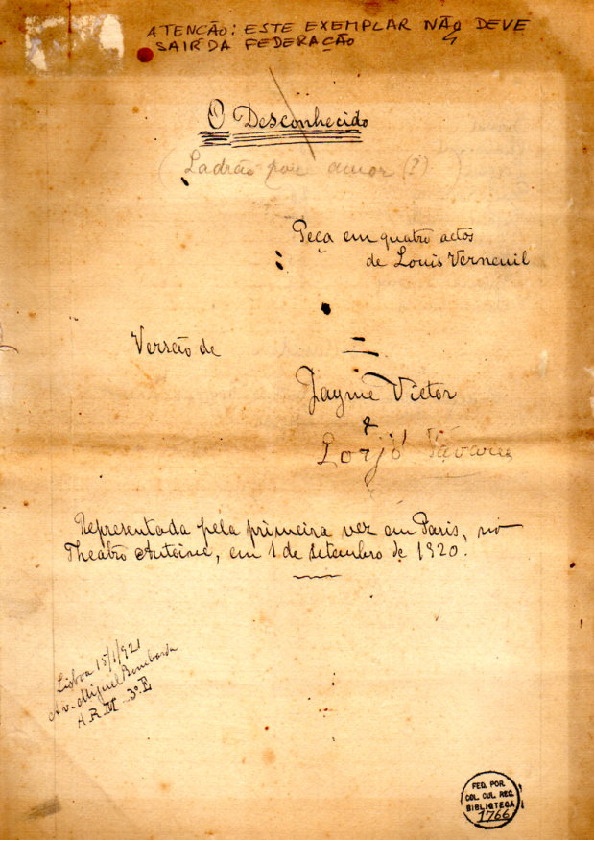 ATENÇÃO: ESTE EXEMPLAR NÃO DEVE
SAIR DA FEDERAÇÃO
O Desconhecido
(Ladrão por amor (?))
Peça em quatro actos
de Louis Verneuil
Versão de
Jayme Victor
&
Lorjó Tavares
Representada pela primeira vez em Paris, no
Theatro Antoine, em 1 de setembro de 1920.
Lisboa 15/1/921
Av. Miguel Bombarda
3º E
FED. POR.
COL. CUL. REC.
BIBLIOTECA
1766